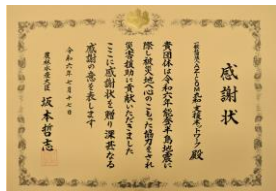 感謝状
殿
貴団体は令和六年能登半島地震に
際し被災地へ心のこもった協力をされ
災害援助に貢献いただきました
ここに感謝状を贈り深甚なる
感謝の意を表します
令和六年七月十七日
農林水産大臣
坂本哲志